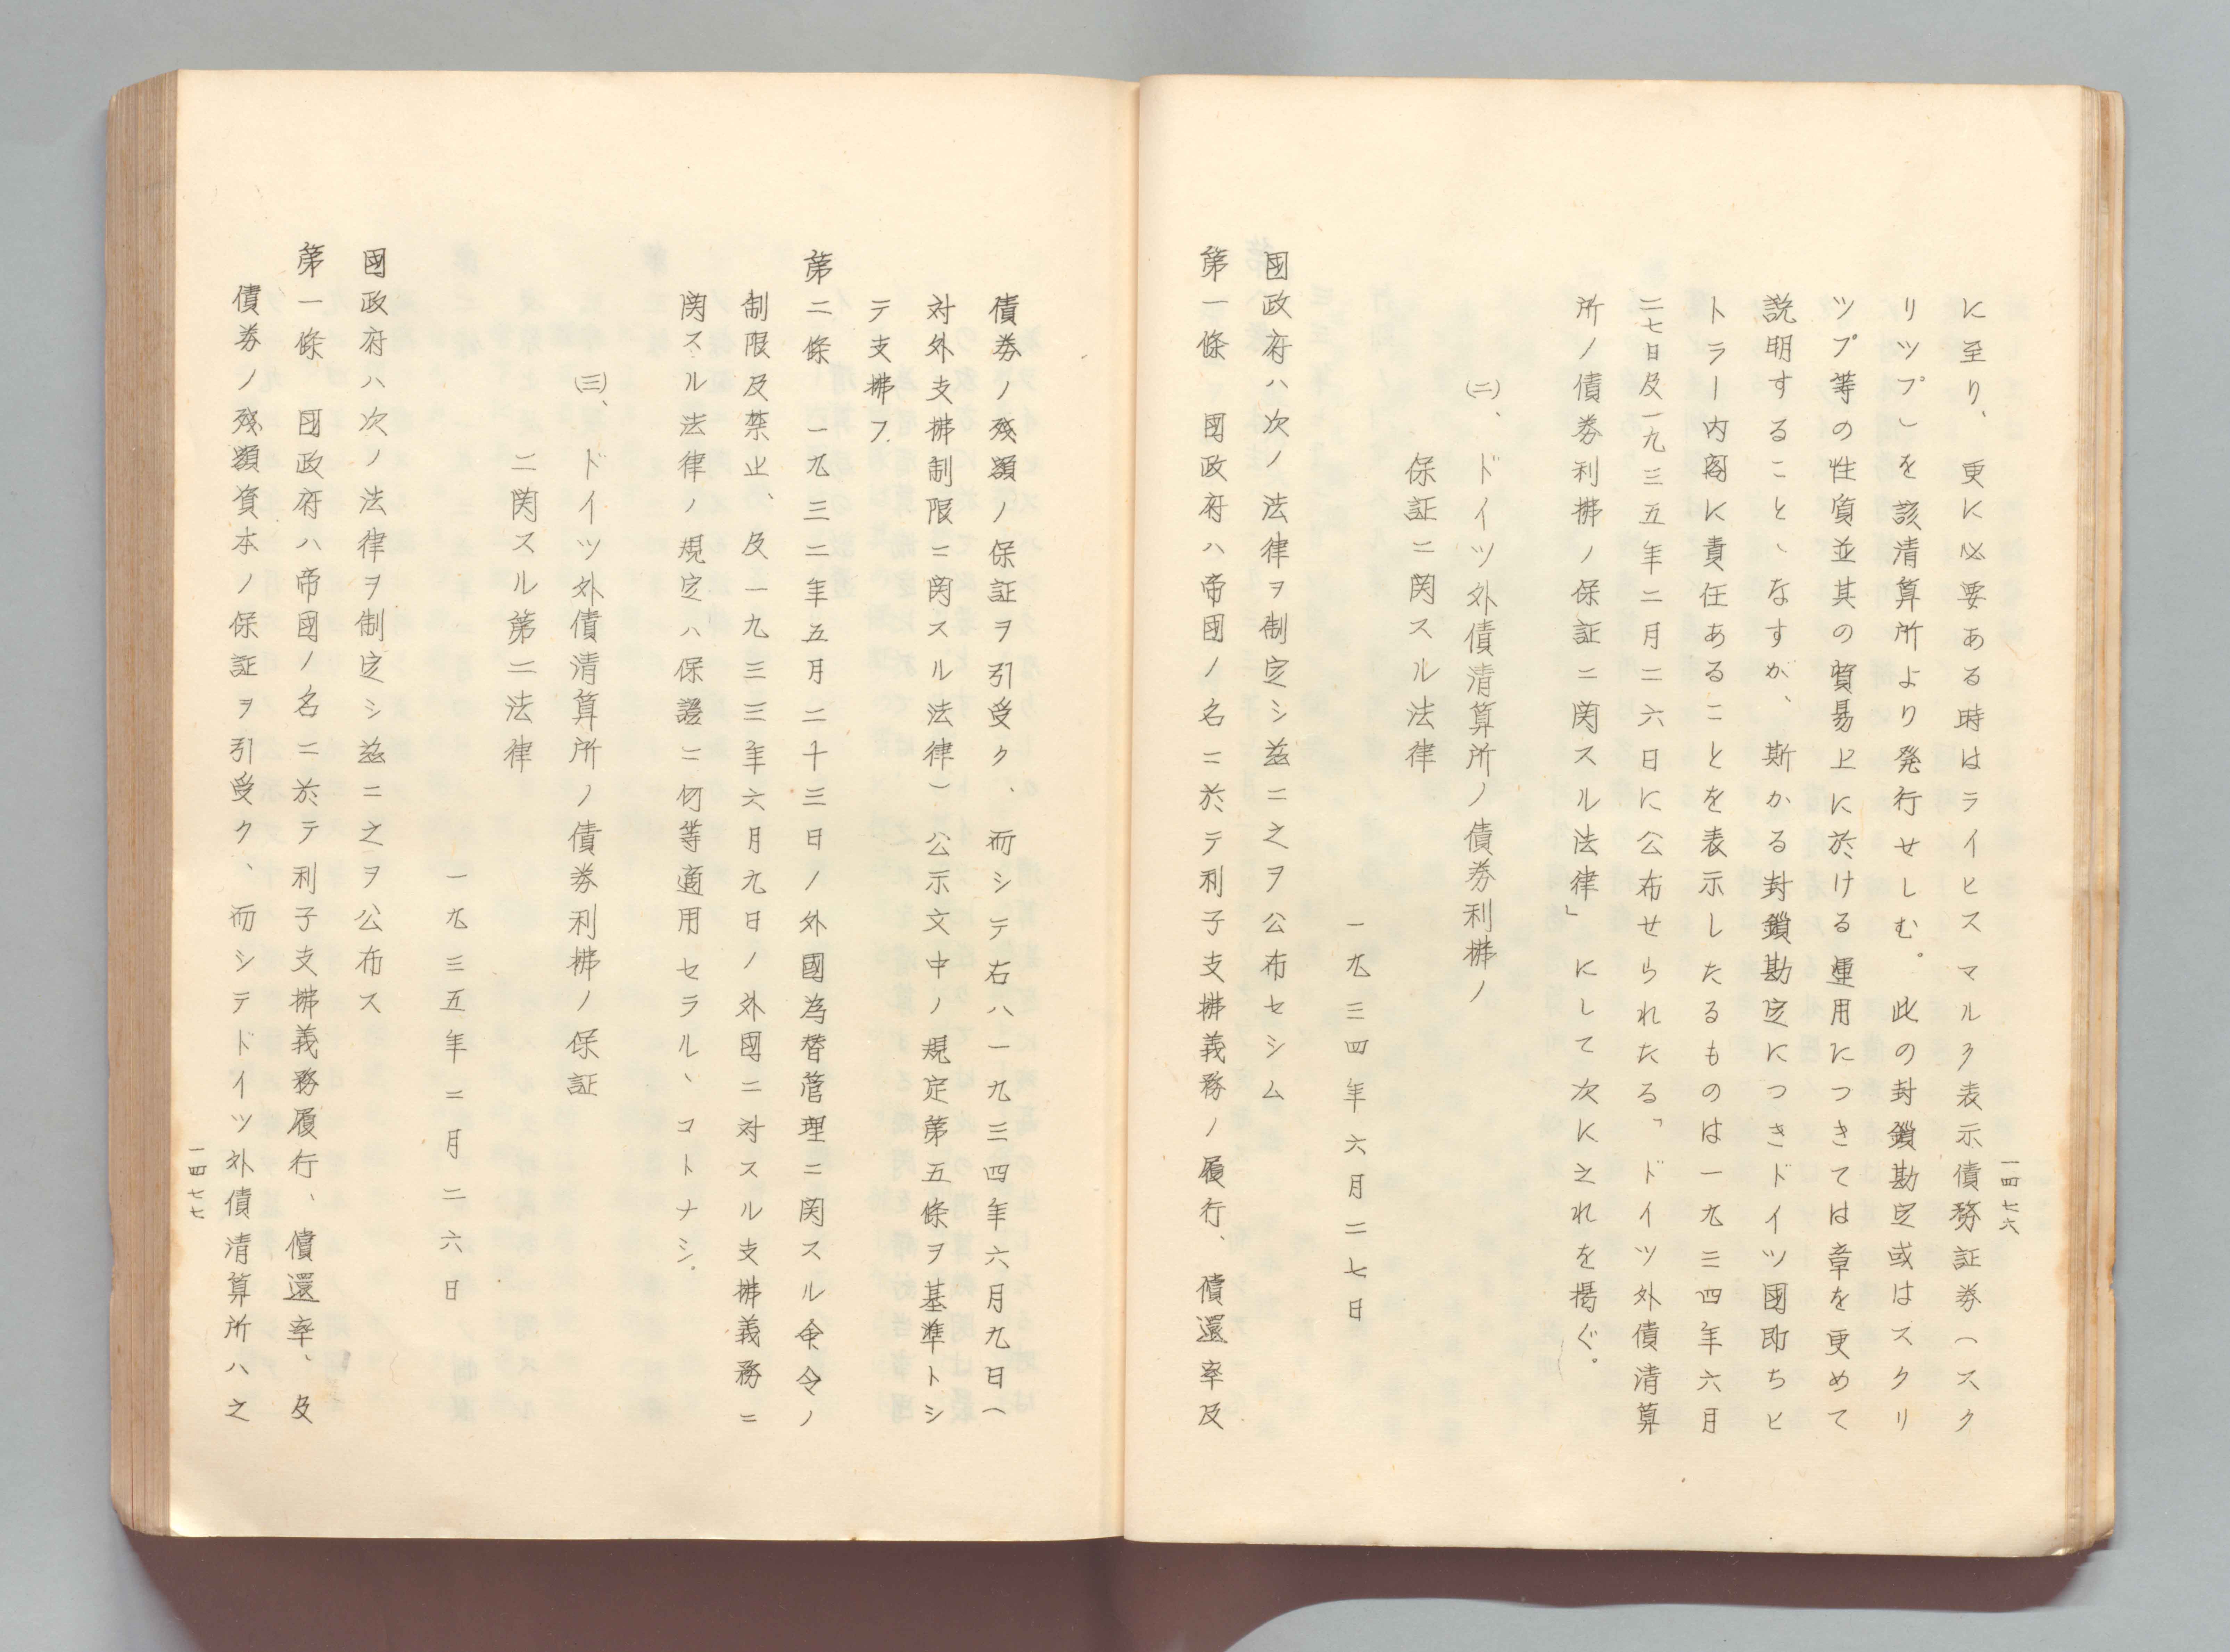 一四七六
に至り、更に必要ある時はライヒスマルク表示債務証券（スク
リツプ）を該清算所より発行せしむ。此の封鎖勘定或はスクリ
ツプ等の性質並其の貿易上に於ける運用につきては章を更めて
説明することゝなすが、斯かる封鎖勘定につきドイツ國即ちヒ
トラー内閣に責任あることを表示したるものは一九三四年六月
二七日及一九三五年二月二六日に公布せられたる「ドイツ外債清算
所ノ債券利拂ノ保証ニ関スル法律」にして次に之れを掲ぐ。
㈡、ドイツ外債清算所ノ債券利拂ノ
保証ニ関スル法律
一九三四年六月二七日
國政府ハ次ノ法律ヲ制定シ茲ニ之ヲ公布セシム
第一條　國政府ハ帝國ノ名ニ於テ利子支拂義務ノ履行、償還率及
債券ノ残額ノ保証ヲ引受ク、而シテ右ハ一九三四年六月九日（
対外支拂制限ニ関スル法律）公示文中ノ規定第五條ヲ基準トシ
テ支拂フ
第二條　一九三二年五月二十三日ノ外國為替管理ニ関スル命令ノ
制限及禁止、及一九三三年六月九日ノ外國ニ対スル支拂義務ニ
関スル法律ノ規定ハ保證ニ何等適用セラルヽコトナシ。
㈢、ドイツ外債清算所ノ債券利拂ノ保証
ニ関スル第二法律
一九三五年二月二六日
國政府ハ次ノ法律ヲ制定シ茲ニ之ヲ公布ス
第一條　國政府ハ帝國ノ名ニ於テ利子支拂義務履行、償還率、及
債券ノ残額資本ノ保証ヲ引受ク、而シテドイツ外債清算所ハ之
一四七七